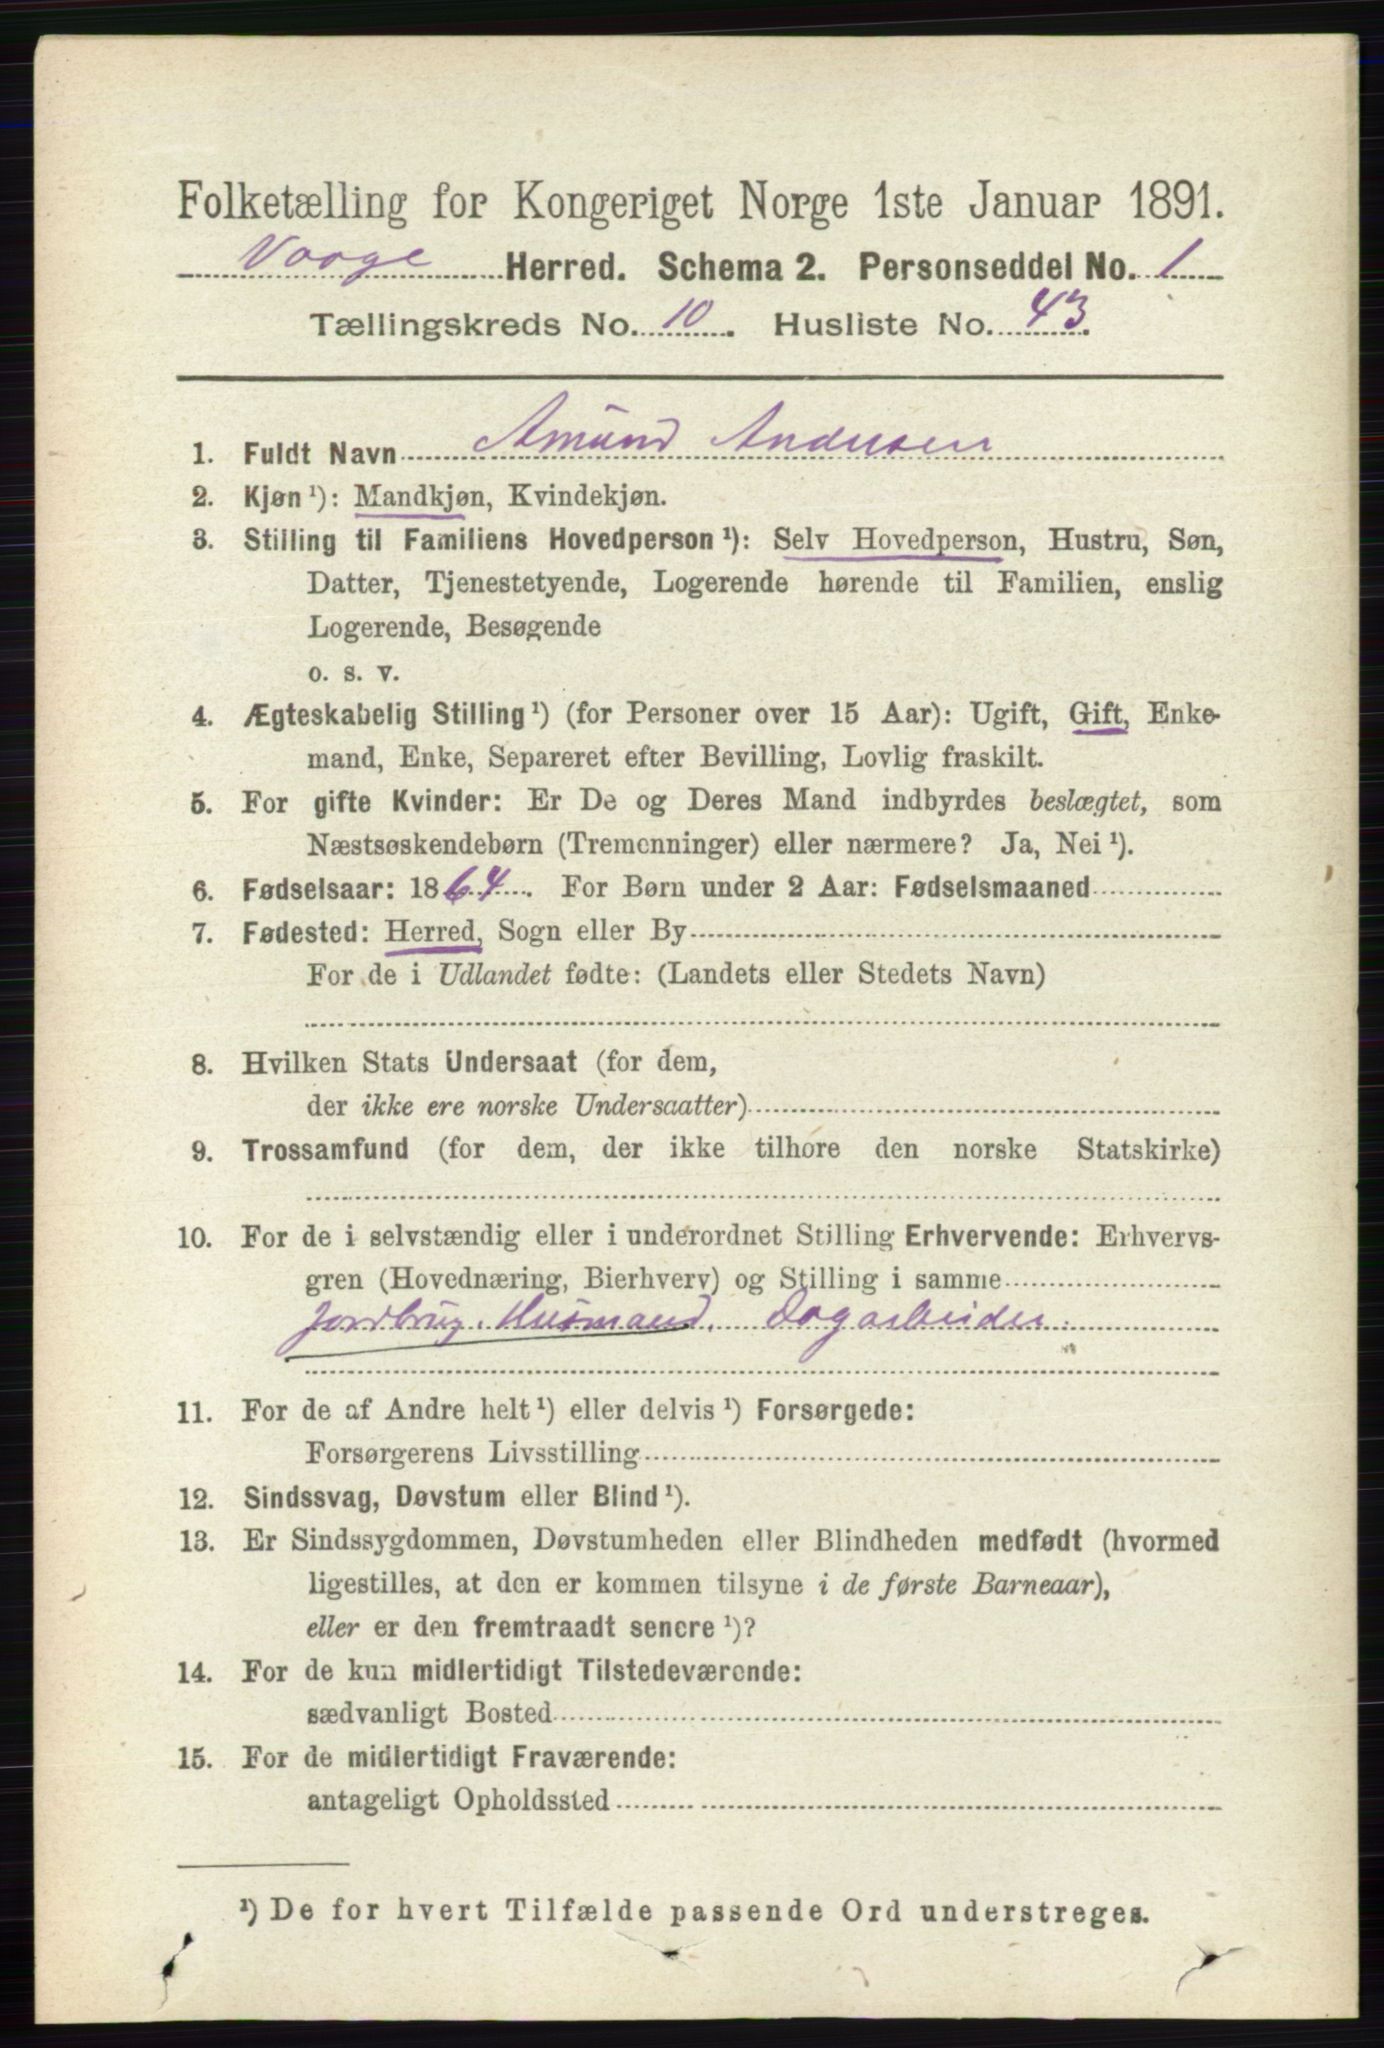 Folketælling for Kongeriget Norge 1ste Januar 1891.
Vaage Herred. Schema 2. Personseddel No. 1
Tællingskreds No. 10. Husliste No. 43.
1. Fuldt Navn Amund Andersen
2. Kjøn ¹): Mandkjøn, Kvindekjøn.
3. Stilling til Familiens Hovedperson ¹): Selv Hovedperson, Hustru, Søn,
Datter, Tjenestetyende, Logerende hørende til Familien, enslig
Logerende, Besøgende
o. s. v.
4. Ægteskabelig Stilling ¹) (for Personer over 15 Aar): Ugift, Gift, Enke-
mand, Enke, Separeret efter Bevilling, Lovlig fraskilt.
5. For gifte Kvinder: Er De og Deres Mand indbyrdes beslægtet, som
Næstsøskendebørn (Tremenninger) eller nærmere? Ja, Nei ¹).
6. Fødselsaar: 1864. For Børn under 2 Aar: Fødselsmaaned
7. Fødested: Herred, Sogn eller By
For de i Udlandet fødte: (Landets eller Stedets Navn)
8. Hvilken Stats Undersaat (for dem,
der ikke ere norske Undersaatter)
9. Trossamfund (for dem, der ikke tilhøre den norske Statskirke)
10. For de i selvstændig eller i underordnet Stilling Erhvervende: Erhvervs-
gren (Hovednæring, Bierhverv) og Stilling i samme
Jordbrug. Husmand. Dagarbeider.
11. For de af Andre helt ¹) eller delvis ¹) Forsørgede:
Forsørgerens Livsstilling
12. Sindssvag, Døvstum eller Blind ¹).
13. Er Sindssygdommen, Døvstumheden eller Blindheden medfødt (hvormed
ligestilles, at den er kommen tilsyne i de første Barneaar),
eller er den fremtraadt senere ¹)?
14. For de kun midlertidigt Tilstedeværende:
sædvanligt Bosted
15. For de midlertidigt Fraværende:
antageligt Opholdssted
¹) De for hvert Tilfælde passende Ord understreges.